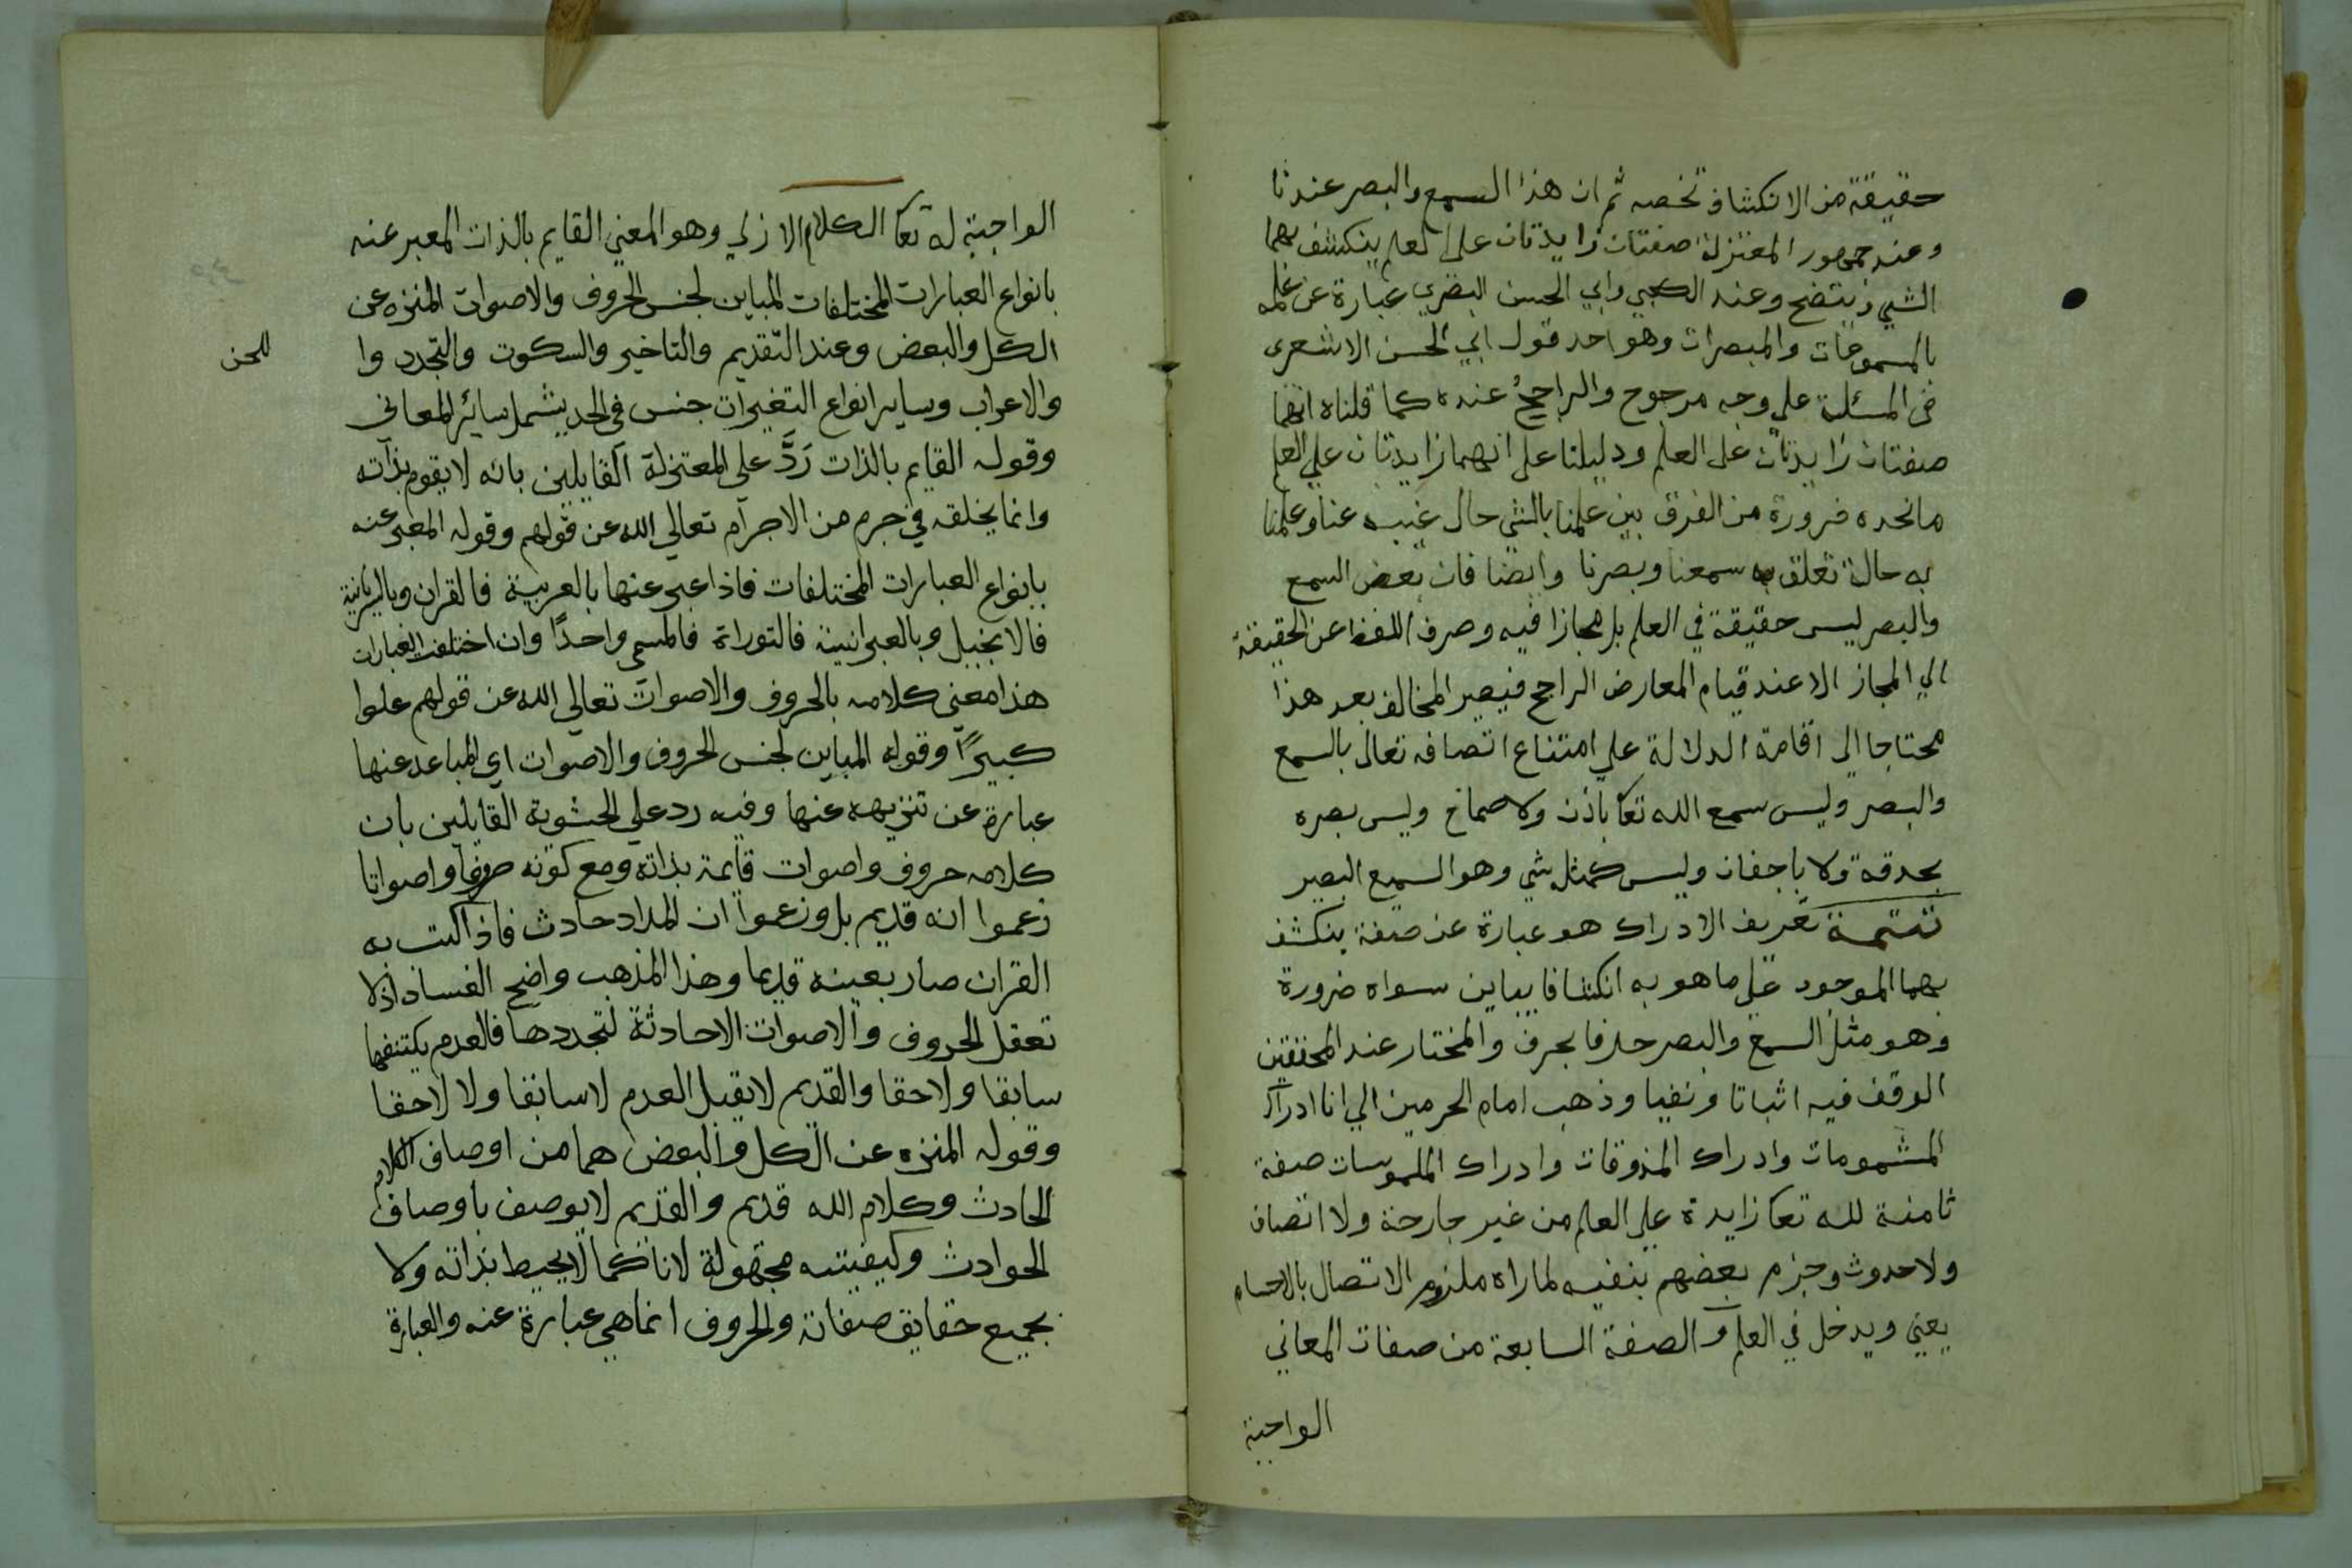 حقيقة من الانكشاف تخصه ثم ان هذا السمع والبصر عندنا
وعند جمهور المعتزلة صفتان زايدتان على العلم ينكشف بهما
الشي ويتضح وعند الكعبي وابي الحسن البصري عبارة عن علمه
بالمسموعات والمبصرات وهو احد قول ابي الحسن الاشعرى
فى المسئلة على وجه مرجوح والراجح عنده كما قلناه انهما
صفتان زايدتان على العلم ودليلنا على انهما زايدتان على العلم
مانجده ضرورة من الفرق بين علمنا بالشي حال غيبه عنا وعلمنا
به حالة تعلق به سمعنا وبصرنا وايضا فان بعض السمع
والبصر ليس حقيقة في العلم بل مجازا فيه وصرف اللفظ عن الحقيقة
الي المجاز الا عند قيام المعارض الراجح فيصير المخالف بعد هذا
محتاجا الى اقامة الدلالة علي امتناع اتصافه تعالى بالسمع
والبصر وليس سمع الله تعا باذن ولا صماخ وليس بصره
بحدقة ولا باجفان وليس كمثله شي وهو السميع البصير
تتمة تعريف الادراك هو عبارة عن صفة ينكشف
بهما الموجود على ما هو به انكشافا يباين سواه ضرورة
وهو مثل السمع والبصر حرفا بحرف والمختار عند المحققين
الوقف فيه اثباتا ونفيا وذهب امام الحرمين الي انا ادراك
المشمومات وادراك المذوقات وادراك الملموسات صفة
ثامنة لله تعا زايدة على العلم من غير جارحة ولا اتصاف
ولا حدوث وجزم بعضهم بنفيه لما راه ملزوم الاتصال بالاجسام
يعني ويدخل في العلم والصفة السابعة من صفات المعاني
الواجبة
الواجبة له تعا الكلام الازلي وهو المعني القايم بالذات المعبر عنه
بانواع العبارات المختلفات المباين لجنس الحروف والاصوات المنزه عن
الكل والبعض وعند التقديم والتاخير والسكوت والتجدد وا
للحن
والاعراب وساير انواع التغيرات جنس فى الحد يشمل سائر المعانى
وقوله القايم بالذات رَدَّ على المعتزلة القايلين بانه لا يقوم بذاته
وانما يخلقه في جرم من الاجرام تعالي الله عن قولهم وقوله المعبر عنه
بانواع العبارات المختلفات فاذا عبر عنها بالعربية فالقران وبالسريانية
فالانجيل وبالعبرانية فالتوراة فالمسمى واحدًا وان اختلفت العبارات
هذا معني كلامه بالحروف والاصوات تعالي الله عن قولهم علوا
كبيرًا وقوله المباين لجنس الحروف والاصوات اي المباعد عنها
عبارة عن تنزيهه عنها وفيه رد علي الحشوية القايلين بان
كلامه حروف واصوات قايمة بذاته ومع كونه حروفا واصواتا
زعموا انه قديم بل وزعموا ان المداد حادث فاذا كتب به
القران صار بعينه قديما وهذا المذهب واضح الفساد اذلا
تعقل الحروف والاصوات الاحادثة لتجددها فالعدم يكتنفها
سابقا ولاحقا والقديم لا يقبل العدم لا سابقا ولا لاحقا
وقوله المنزه عن الكل والبعض هما من اوصاف الكلام
الحادث وكلام الله قديم والقديم لا يوصف باوصاف
الحوادث وكيفيته مجهولة لانا كما لا يحيط بذاته ولا
بجميع حقايق صفاته والحروف انما هي عبارة عنه والعبارة